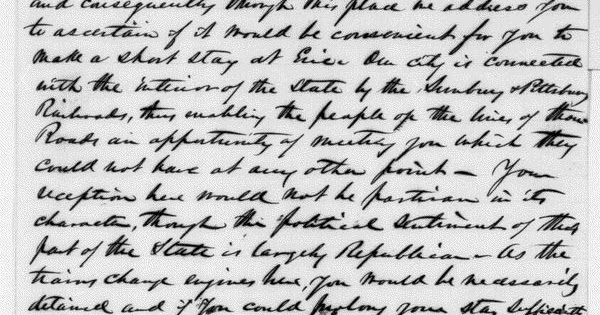 and consequently through this place we address you
to ascertain if it would be convenient for you to
make a short stay at Erie. Our city is connected
with the interior of the State by the Sunbury & Pittsburg
Railroads, thus enabling the people on the lines of these
Roads an opportunity of meeting you which they
could not have at any other point — Your
reception here would not be partisan in its
character, though the political sentiment of this
part of the State is largely Republican — As the
trains change engines here, you would be necessarily
detained and if you could prolong your stay sufficiently